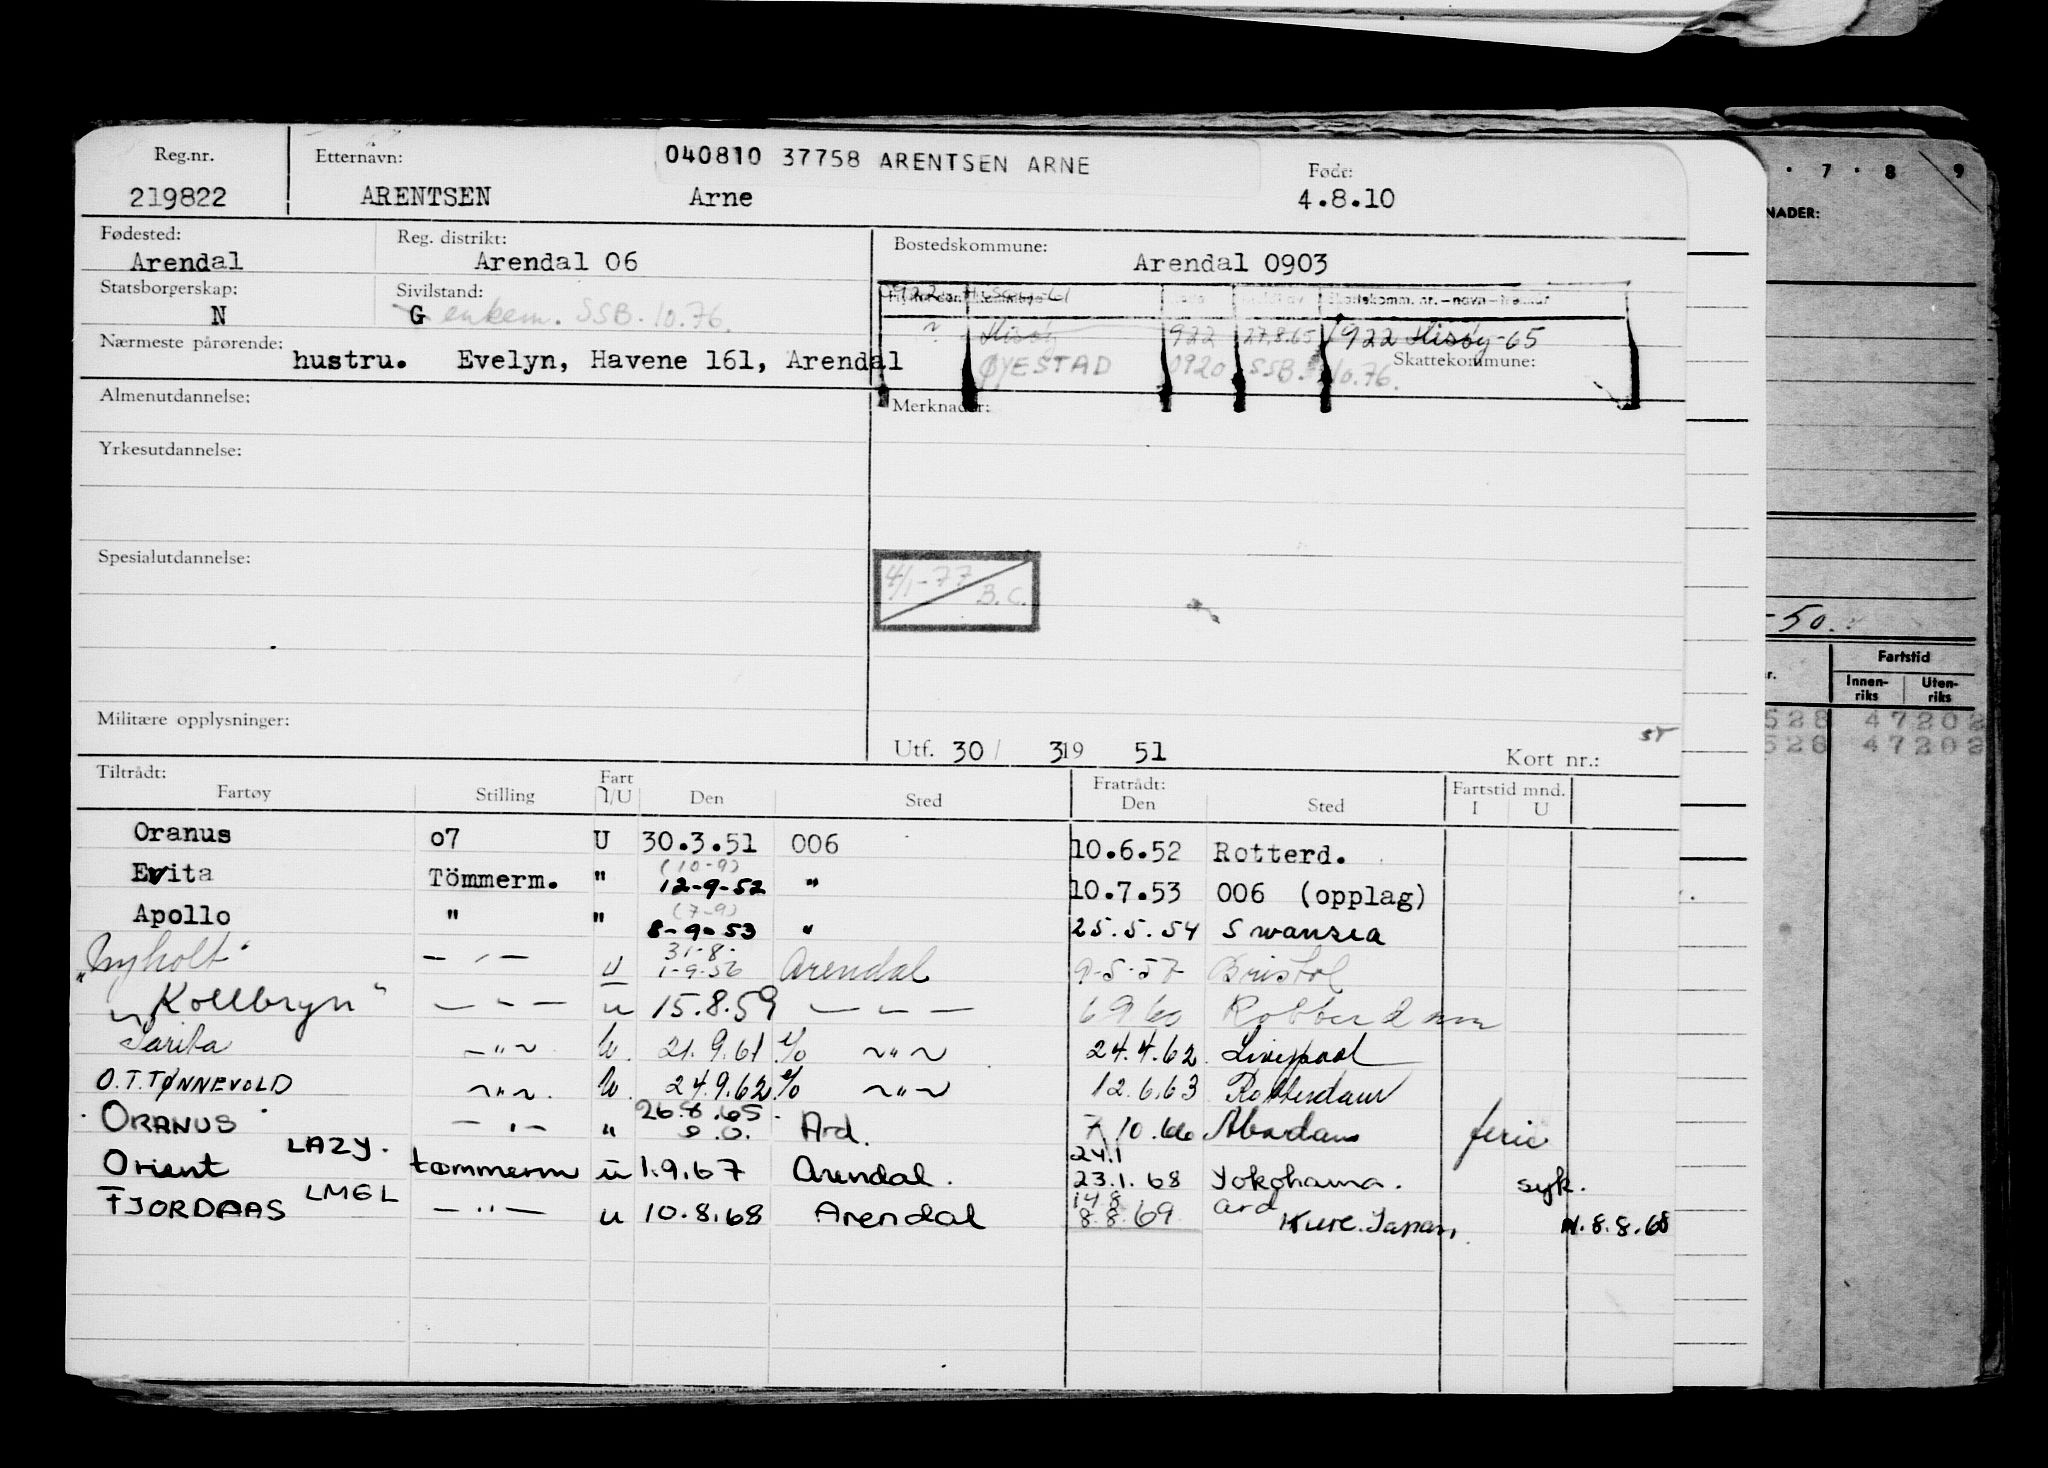 Reg.nr. Etternavn: 040810 37758 ARENTSEN ARNE Født:
219822 ARENTSEN Arne 4.8.10
Fødested: Reg. distrikt: Bostedskommune:
Arendal Arendal 06 Arendal 0903
Statsborgerskap: Sivilstand:
N G enkem. SSB. 10.76.
922 27.8.65 922 Hisøy-65
Nærmeste pårørende: Skattekommune:
hustru. Evelyn, Havene 161, Arendal ØYESTAD 0920 SSB. 10.76.
Almenutdannelse: Merknader:
Yrkesutdannelse:
Spesialutdannelse:
4/1-77 B.C.
Militære opplysninger:
Utf. 30/ 319 51 Kort nr.:
Tiltrådt: Fratrådt: Fartstid mnd.
Fartøy Stilling Fart I/U Den Sted Den Sted I U
Oranus o7 U 30.3.51 006 10.6.52 Rotterd.
(10-9)
Evita Tömmerm. " 12-9-52 " 10.7.53 006 (opplag)
(7-9)
Apollo " " 8-9-53 " 25.5.54 Swansea
31-8-
"Nyholt" - " - U 1-9-56 Arendal 9-5-57 Bristol
"Kollbryn" - " - u 15.8.59 - " - 6 9 60 Rotterdam
Sarita - " - U. 21.9.61 - " - 24.4.62 Liverpool
O.T.TØNNEVOLD - " - U. 24.9.62 - " - 12.6.63 Rotterdam
26.8.65
ORANUS - " - " Ard. 7 10.66 Abadan ferie
LAZY. 24.1
Orient tømmerm u 1.9.67 Arendal. 23.1.68 Yokohama. syk.
LMGL 14.8 Ard
FJORDAAS - " - u 10.8.68 Arendal 8.8.69 Kure. Japan, 8.8.68
7 · 8 9
NADER:
-50.
Fartstid
Innen-riks Uten-riks
528 47202
528 47202